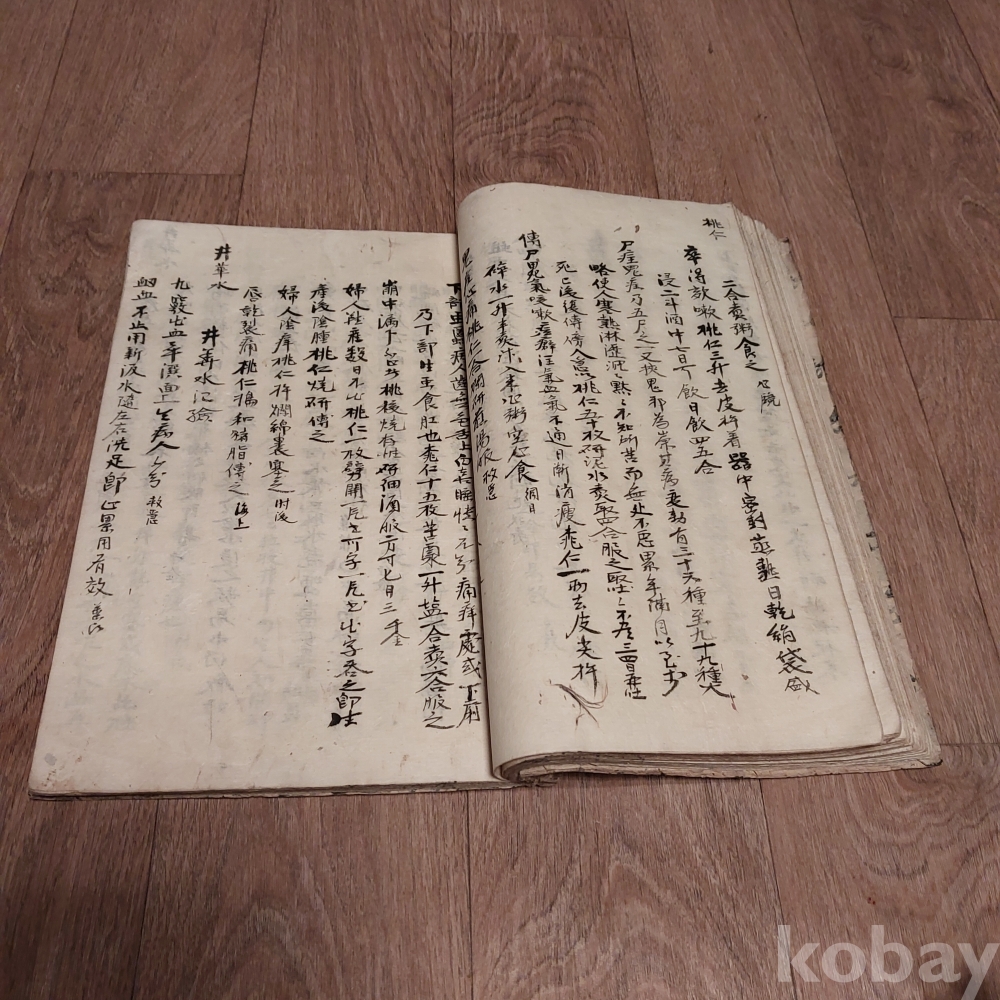 桃仁
二合煮粥食之 心鏡
卒得欬嗽桃仁三升去皮杵着器中密封蒸熟日乾絹袋盛
浸二斗酒中一日可飲日飲四五合
尸疰鬼疰乃五尸之一又挾鬼邪為祟其病変動有三十六種至九十九種大
略使人寒熱淋瀝沉沉黙黙不知所苦而無處不惡累年積月以至於
死已後復傳傍人急以桃仁五十枚研泥水煮取四合服之
傳尸鬼氣咳嗽痃癖注氣血氣不通日漸消瘦桃仁一兩去皮尖杵
碎水一升半煮汁入米作粥空心食 綱目
鬼疰心痛桃仁一合爛研煎湯服 救急
乃下部生虫食肛也桃仁十五枚苦酒二升盐一合煮六合服之
崩中漏下 桃核燒存性研細酒服方寸匕日三 千金
婦人難産數日不出桃仁一枚劈開一片書可字一片書出字吞之即生
産後陰腫桃仁燒研傅之
婦人陰痒桃仁杵爛綿裹塞之 肘後
唇乾裂痛桃仁搗和猪脂傅之 海上
井華水
九竅出血
衂血不止用新汲水隨左右洗足即止累用有效
kobay